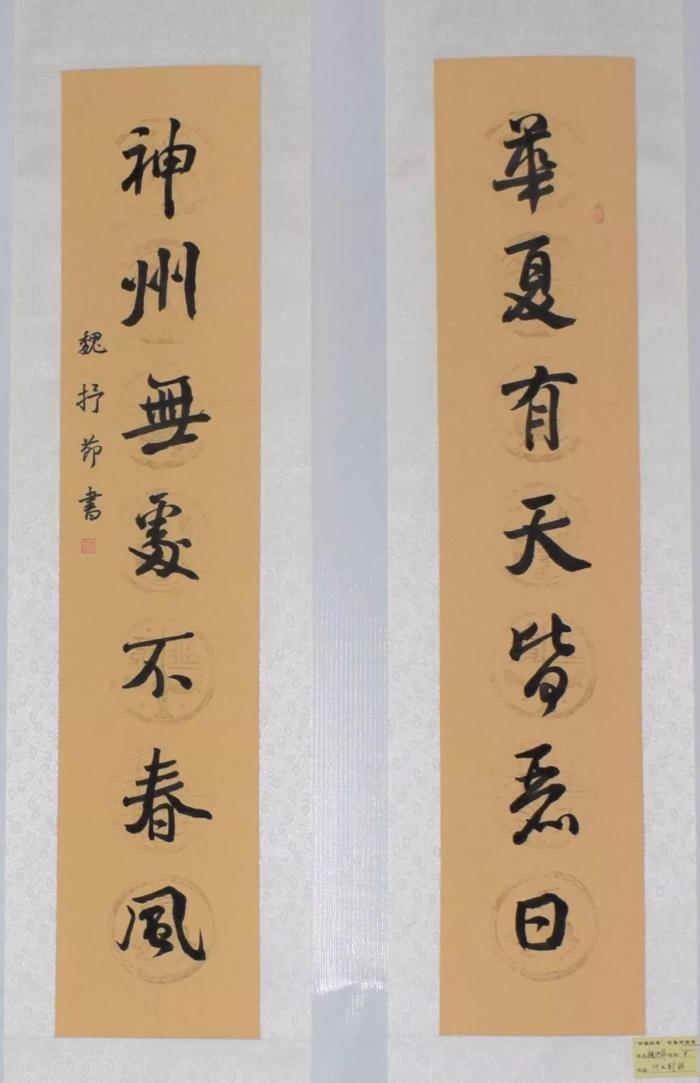 華夏有天皆麗日
神州無處不春風
魏抒節書